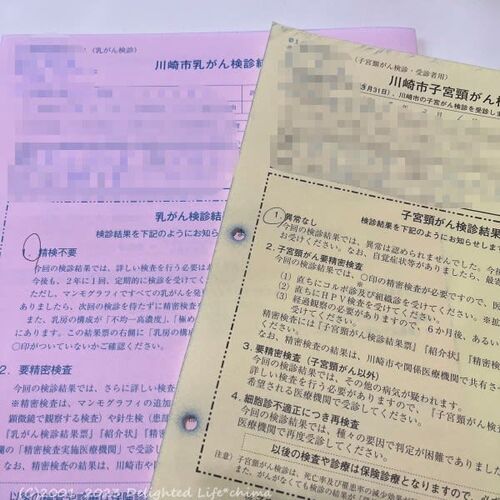 （乳がん検診）
川崎市乳がん検診結
乳がん検診結
検診結果を下記のようにお知ら
1. 精検不要
今回の検診結果では、詳しい検査を行う必要は
今後も、2年に1回、定期的に検診を受けて
ただし、マンモグラフィですべての乳がんを発
ありましたら、次回の検診を待たずに精密検
また、乳房の構成が「不均一高濃度」、「極め
にあります。この結果票の右側に「乳房の構
○印がついていないかご確認ください。
2. 要精密検査
今回の検診結果では、さらに詳しい検査
※精密検査は、マンモグラフィの追加
顕微鏡で観察する検査）や針生検（患部
「乳がん検診結果票」「紹介状」「精密
「精密検査実施医療機関」で受診し
なお、精密検査の結果は、川崎市や
（子宮頸がん検診・受診者用）
川崎市子宮頸がん検
3月31日）、川崎市の子宮がん検診を受診しま
子宮頸がん検診結果
検診結果を下記のようにお知らせします
1. 異常なし
今回の検診結果では、異常は認められませんでした。今後
お受けください。なお、自覚症状等がありましたら、最寄
2. 子宮頸がん要精密検査
今回の検診結果では、○印の精密検査が必要ですので、
(1) 直ちにコルポ診及び組織診を受けてください。
(2) 直ちにHPV検査を受けてください。
(3) 経過観察の必要がありますので、6か月後、あるい
精密検査には「子宮頸がん検診結果票」「紹介状」「精密
なお、精密検査の結果は、川崎市や関係医療機関で共有さ
3. 要精密検査（子宮頸がん以外）
今回の検診結果では、その他の病気が疑われます。
詳しい検査を行う必要がありますので、「子宮頸がん検
希望される医療機関で受診してください。
4. 細胞診不適正につき再検査
今回の検診結果では、種々の要因で判定が困難でありました
医療機関で再度受診してください。
以後の検査や診療は保険診療となりますので、
注意）子宮頸がん検診は、死亡率及び罹患率
また、がんがなくても検診の結果が
Delighted Life*chima